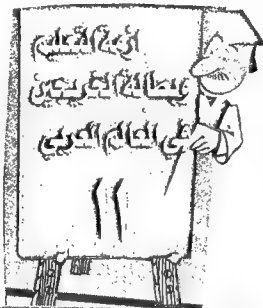 أزمة التعليم
وبطالة الخريجين
في العالم العربي
!!